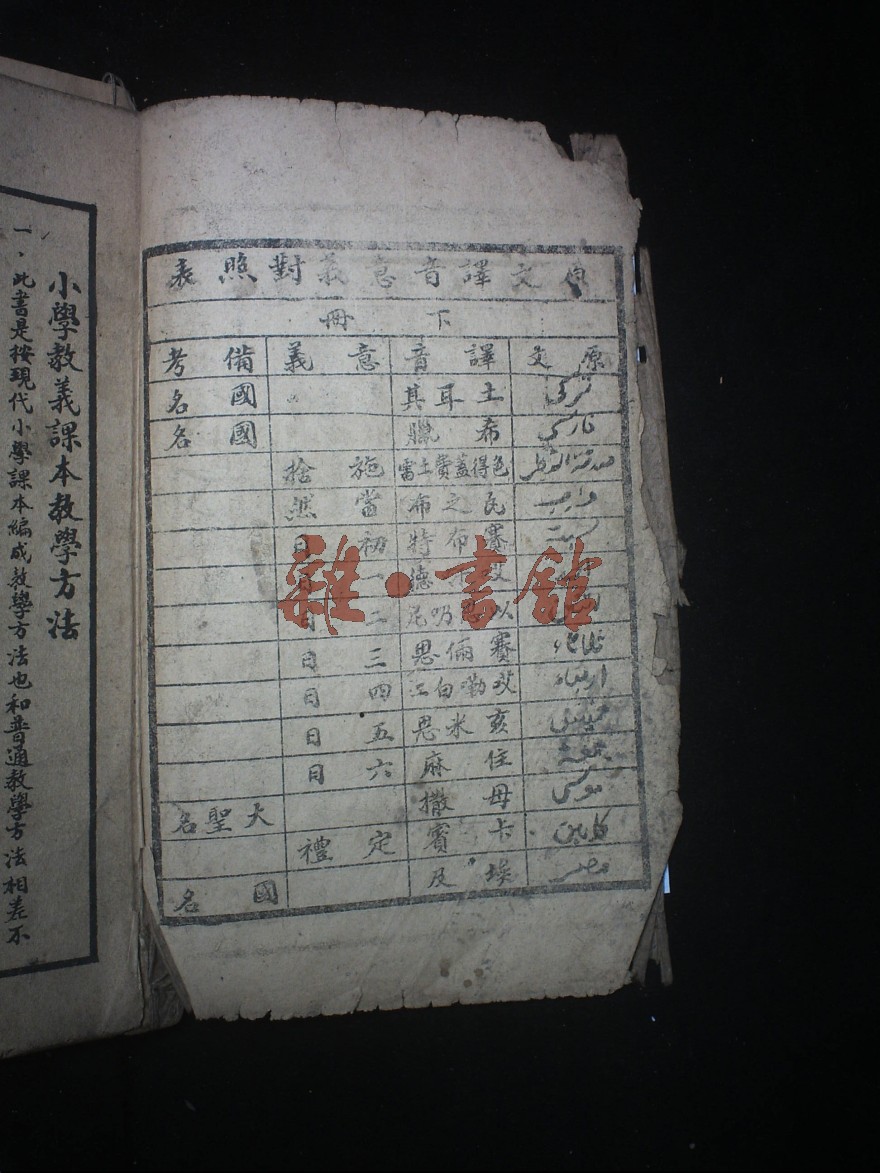 原文譯音意義對照表
下冊
原文 譯音 意義 備考
تركى 土耳其 國名
فارسى 希臘 國名
صدقة الفطر 色得蓋費土雷 施捨
واجب 民之布 當然
賽布特 初日
德 一日
以思乃尼 二日
ثلاثاء 賽倆思 三日
اربعاء 艾勒白江 四日
خميس 亥米思 五日
جمعة 住麻 六日
موسى 母撒 大聖名
كابين 卡賓 定禮
مصر 埃及 國名
小學教義課本教學方法
一、此書是按現代小學課本編成教學方法也和普通教學方法相差不
雜·書館